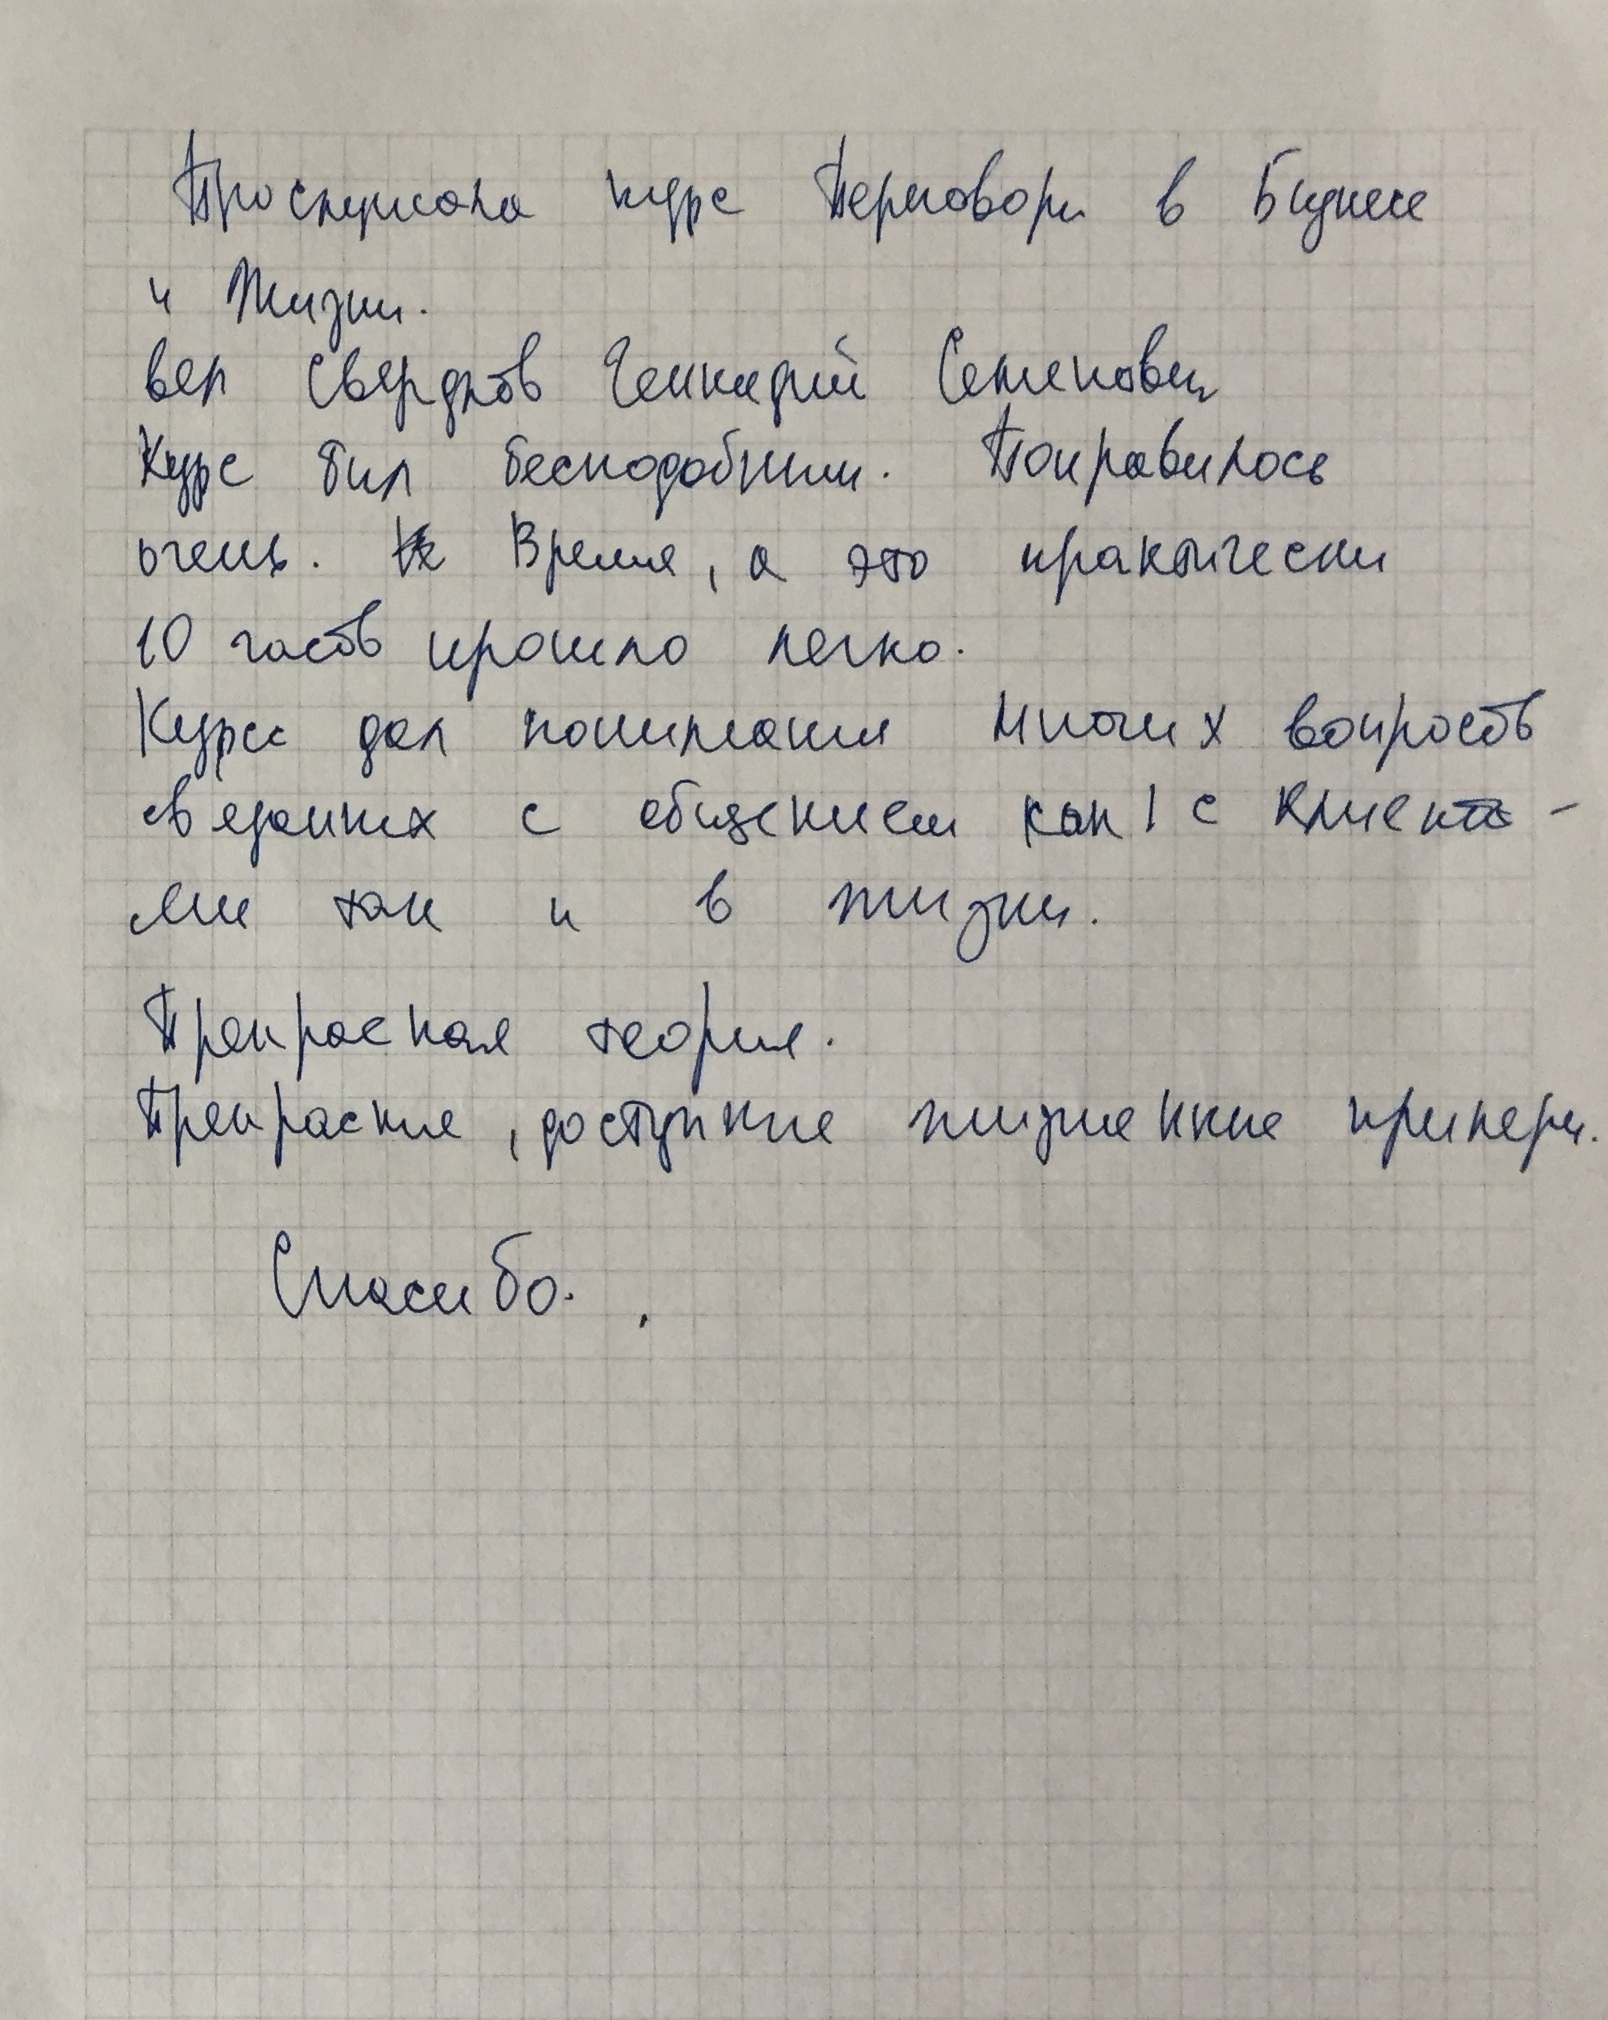 Прослушала курс Переговоры в Бизнесе
и Жизни.
вел Свердлов Геннадий Семенович
Курс был бесподобным. Понравилось
очень. Время, а это практически
10 часов прошло легко.
Курс дал понимания многих вопросов
связанных с общением как и с клиента-
ми так и в жизни.
Прекрасная теория.
Прекрасные, доступные жизненные примеры.
Спасибо.